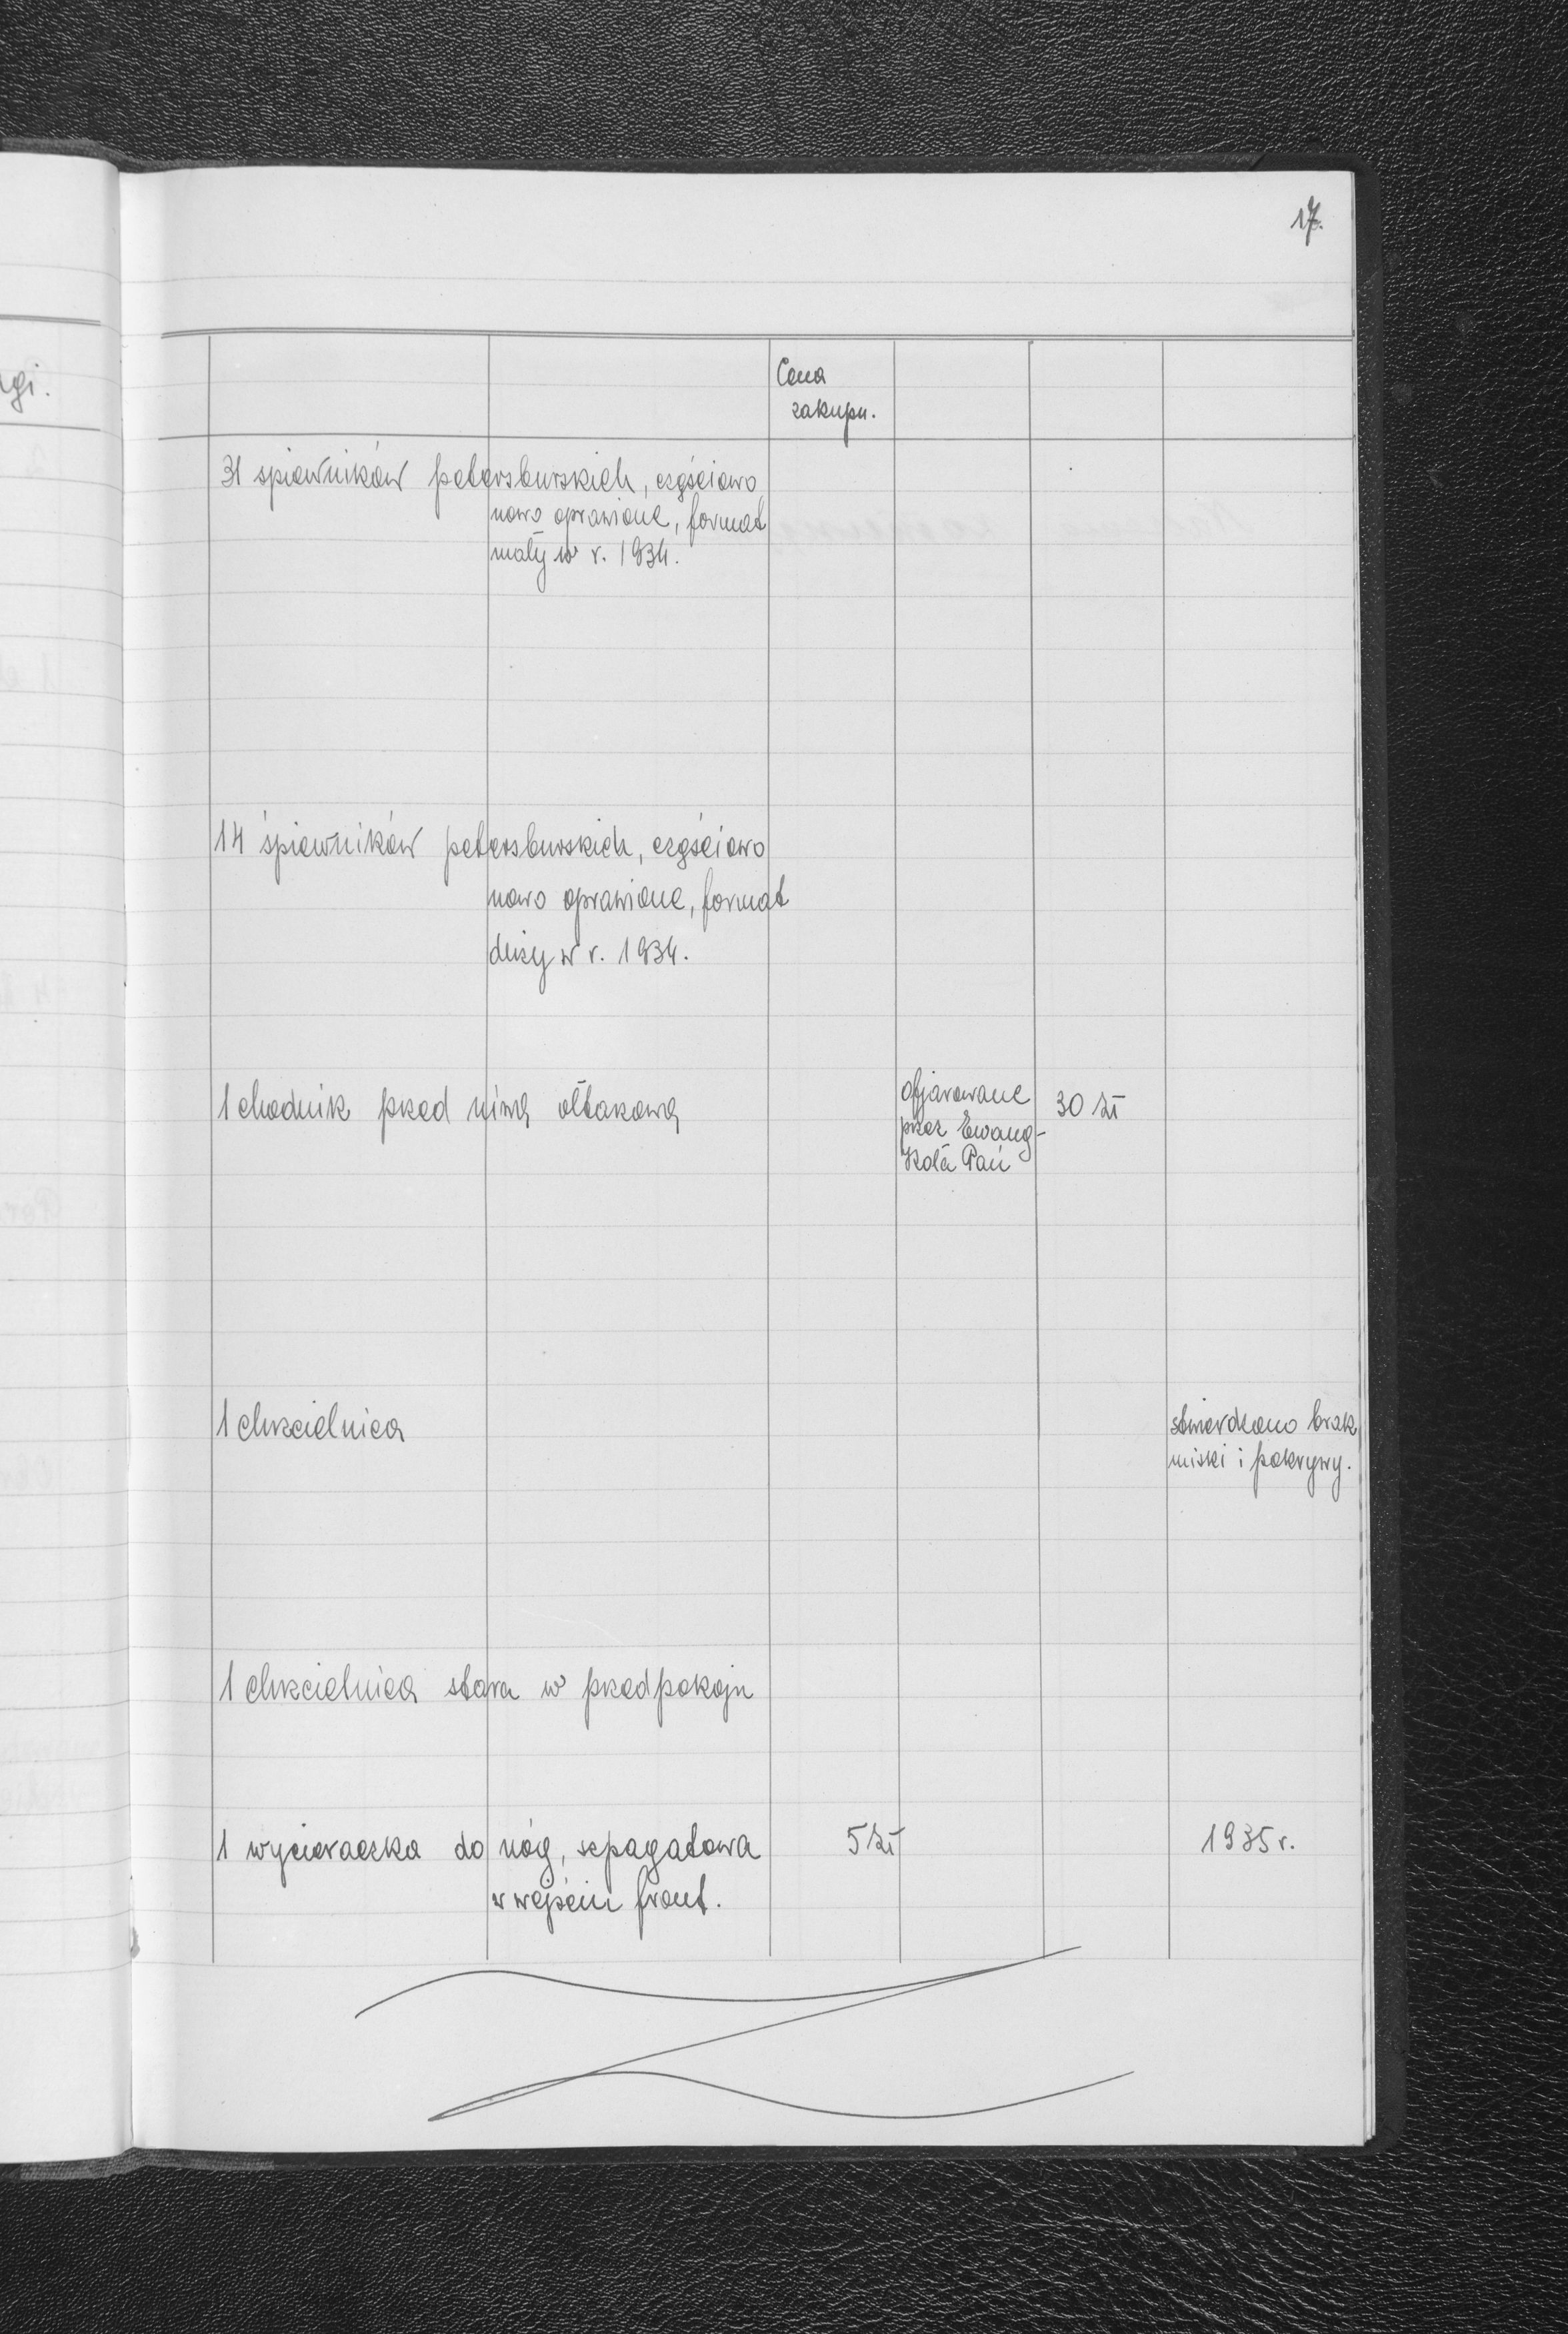 17.
Cena
zakupu.
31 spiewników petersburskich, częściowo
nowo oprawione, format
mały w r. 1934.
14 śpiewników petersburskich, częściowo
nowo oprawione, format
duży w r. 1934.
1 chodnik przed niszą ołtarzową
ofjarowane
przez Ewang-
Koła Pań
30 zł
1 chrzcielnica
stwierdzono brak
miski i pokrywy.
1 chrzcielnica stara w przedpokoju
1 wycieraczka do nóg, szpagatowa
w wejściu front.
5 zł
1935 r.